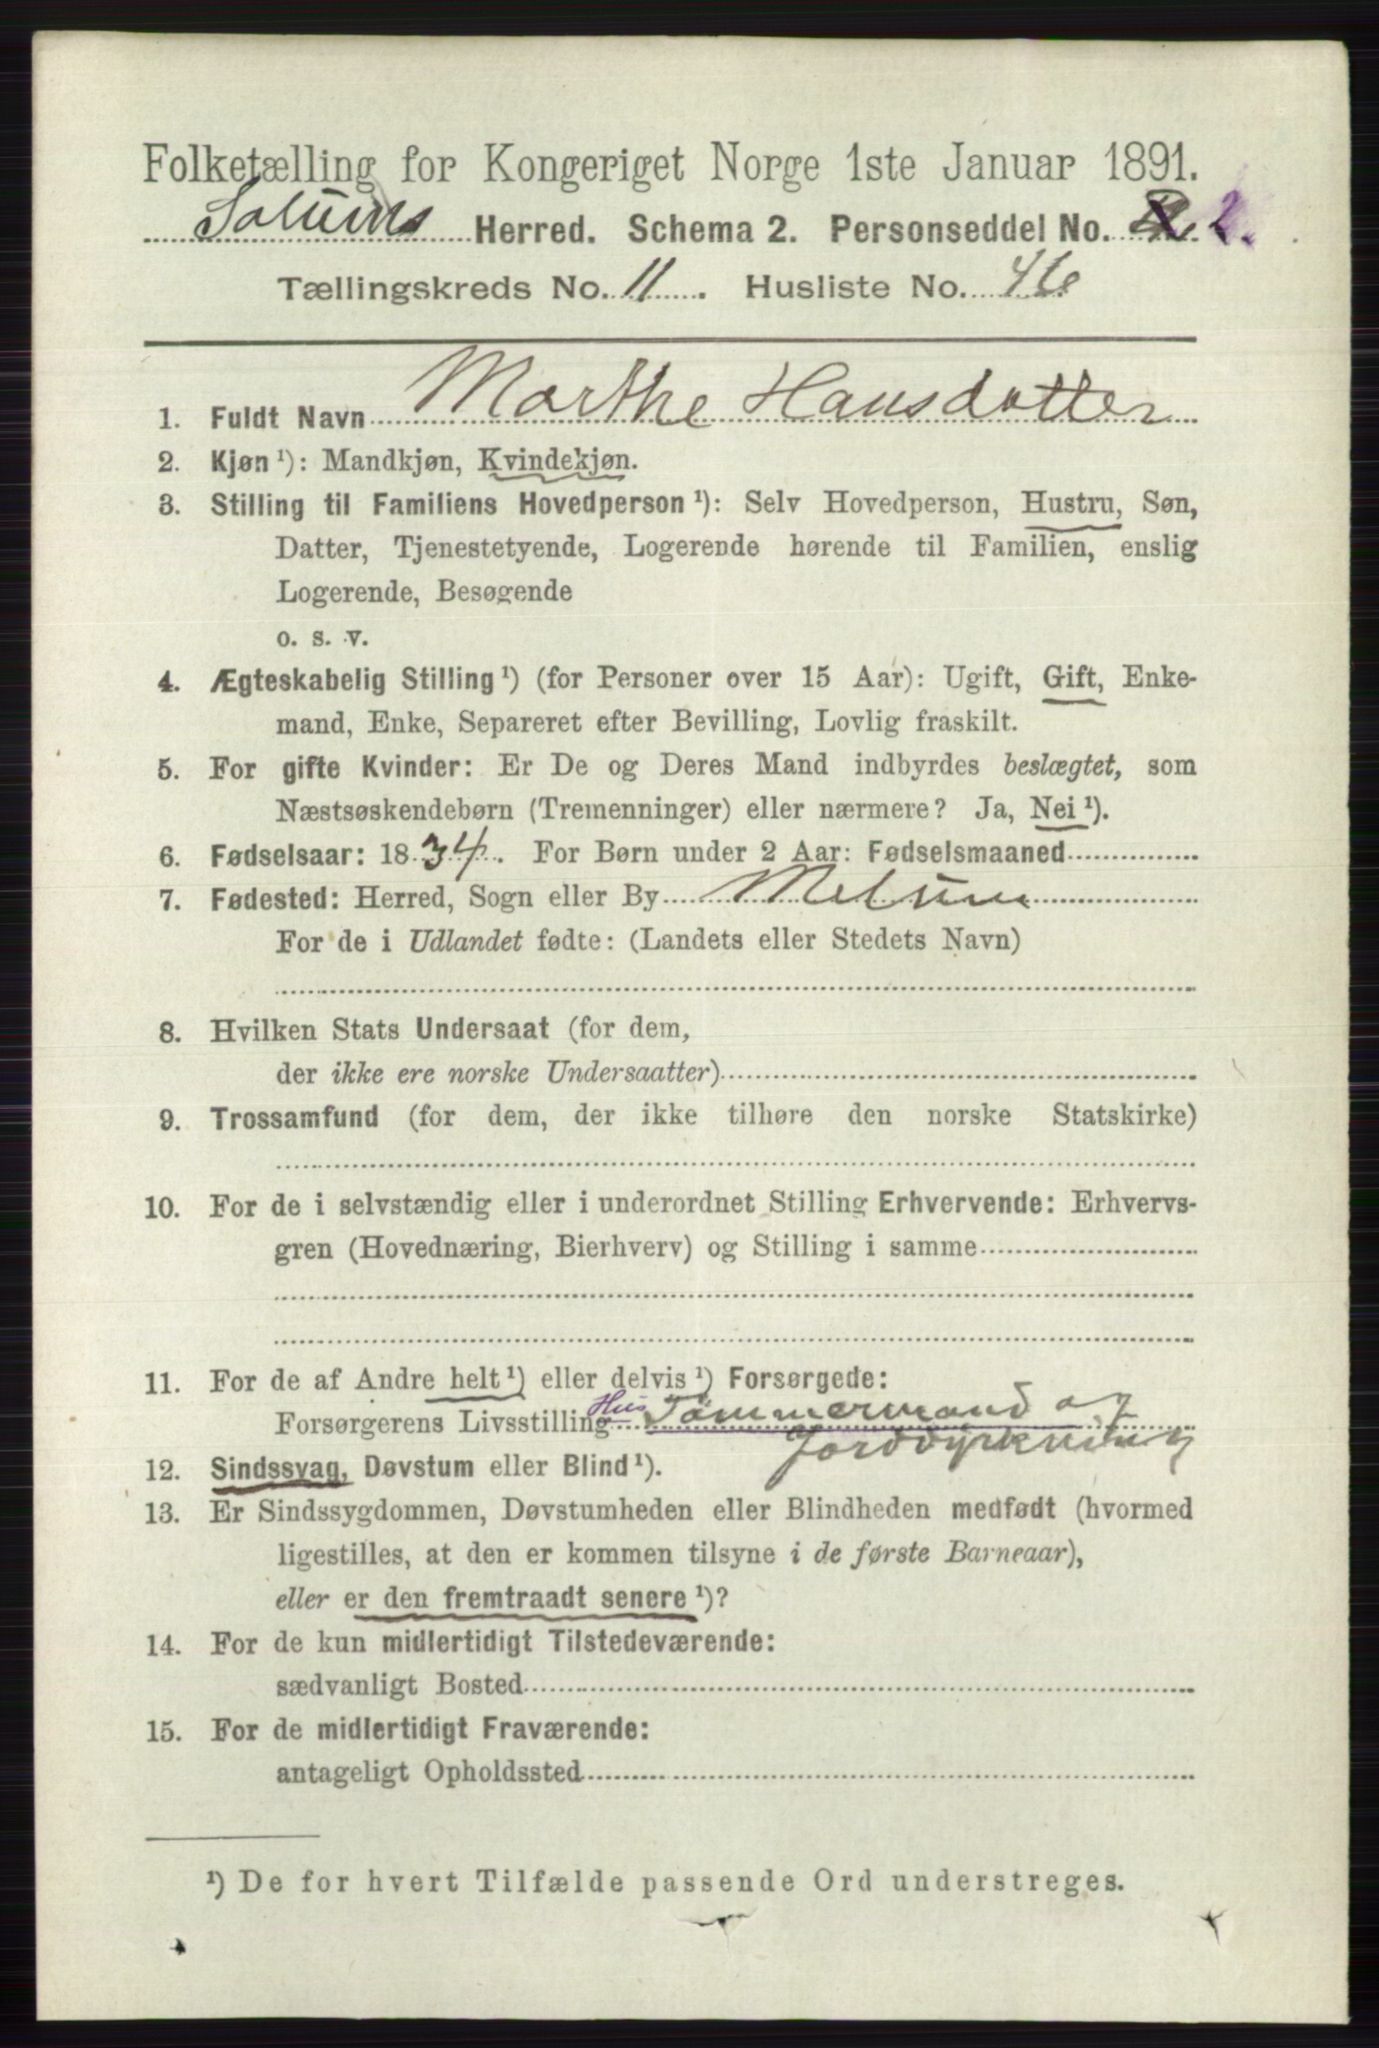 Folketælling for Kongeriget Norge 1ste Januar 1891.
Solums Herred. Schema 2. Personseddel No. 2.
Tællingskreds No. 11. Husliste No. 46
1. Fuldt Navn Marthe Hansdatter
2. Kjøn ¹): Mandkjøn, Kvindekjøn.
3. Stilling til Familiens Hovedperson ¹): Selv Hovedperson, Hustru, Søn,
Datter, Tjenestetyende, Logerende hørende til Familien, enslig
Logerende, Besøgende
o. s. v.
4. Ægteskabelig Stilling ¹) (for Personer over 15 Aar): Ugift, Gift, Enke-
mand, Enke, Separeret efter Bevilling, Lovlig fraskilt.
5. For gifte Kvinder: Er De og Deres Mand indbyrdes beslægtet, som
Næstsøskendebørn (Tremenninger) eller nærmere? Ja, Nei ¹).
6. Fødselsaar: 1834. For Børn under 2 Aar: Fødselsmaaned
7. Fødested: Herred, Sogn eller By Melum
For de i Udlandet fødte: (Landets eller Stedets Navn)
8. Hvilken Stats Undersaat (for dem,
der ikke ere norske Undersaatter)
9. Trossamfund (for dem, der ikke tilhøre den norske Statskirke)
10. For de i selvstændig eller i underordnet Stilling Erhvervende: Erhvervs-
gren (Hovednæring, Bierhverv) og Stilling i samme
11. For de af Andre helt ¹) eller delvis ¹) Forsørgede:
Forsørgerens Livsstilling Hus Tömmermand og
Jorddyrkning
12. Sindssvag, Døvstum eller Blind ¹).
13. Er Sindssygdommen, Døvstumheden eller Blindheden medfødt (hvormed
ligestilles, at den er kommen tilsyne i de første Barneaar),
eller er den fremtraadt senere ¹)?
14. For de kun midlertidigt Tilstedeværende:
sædvanligt Bosted
15. For de midlertidigt Fraværende:
antageligt Opholdssted
¹) De for hvert Tilfælde passende Ord understreges.